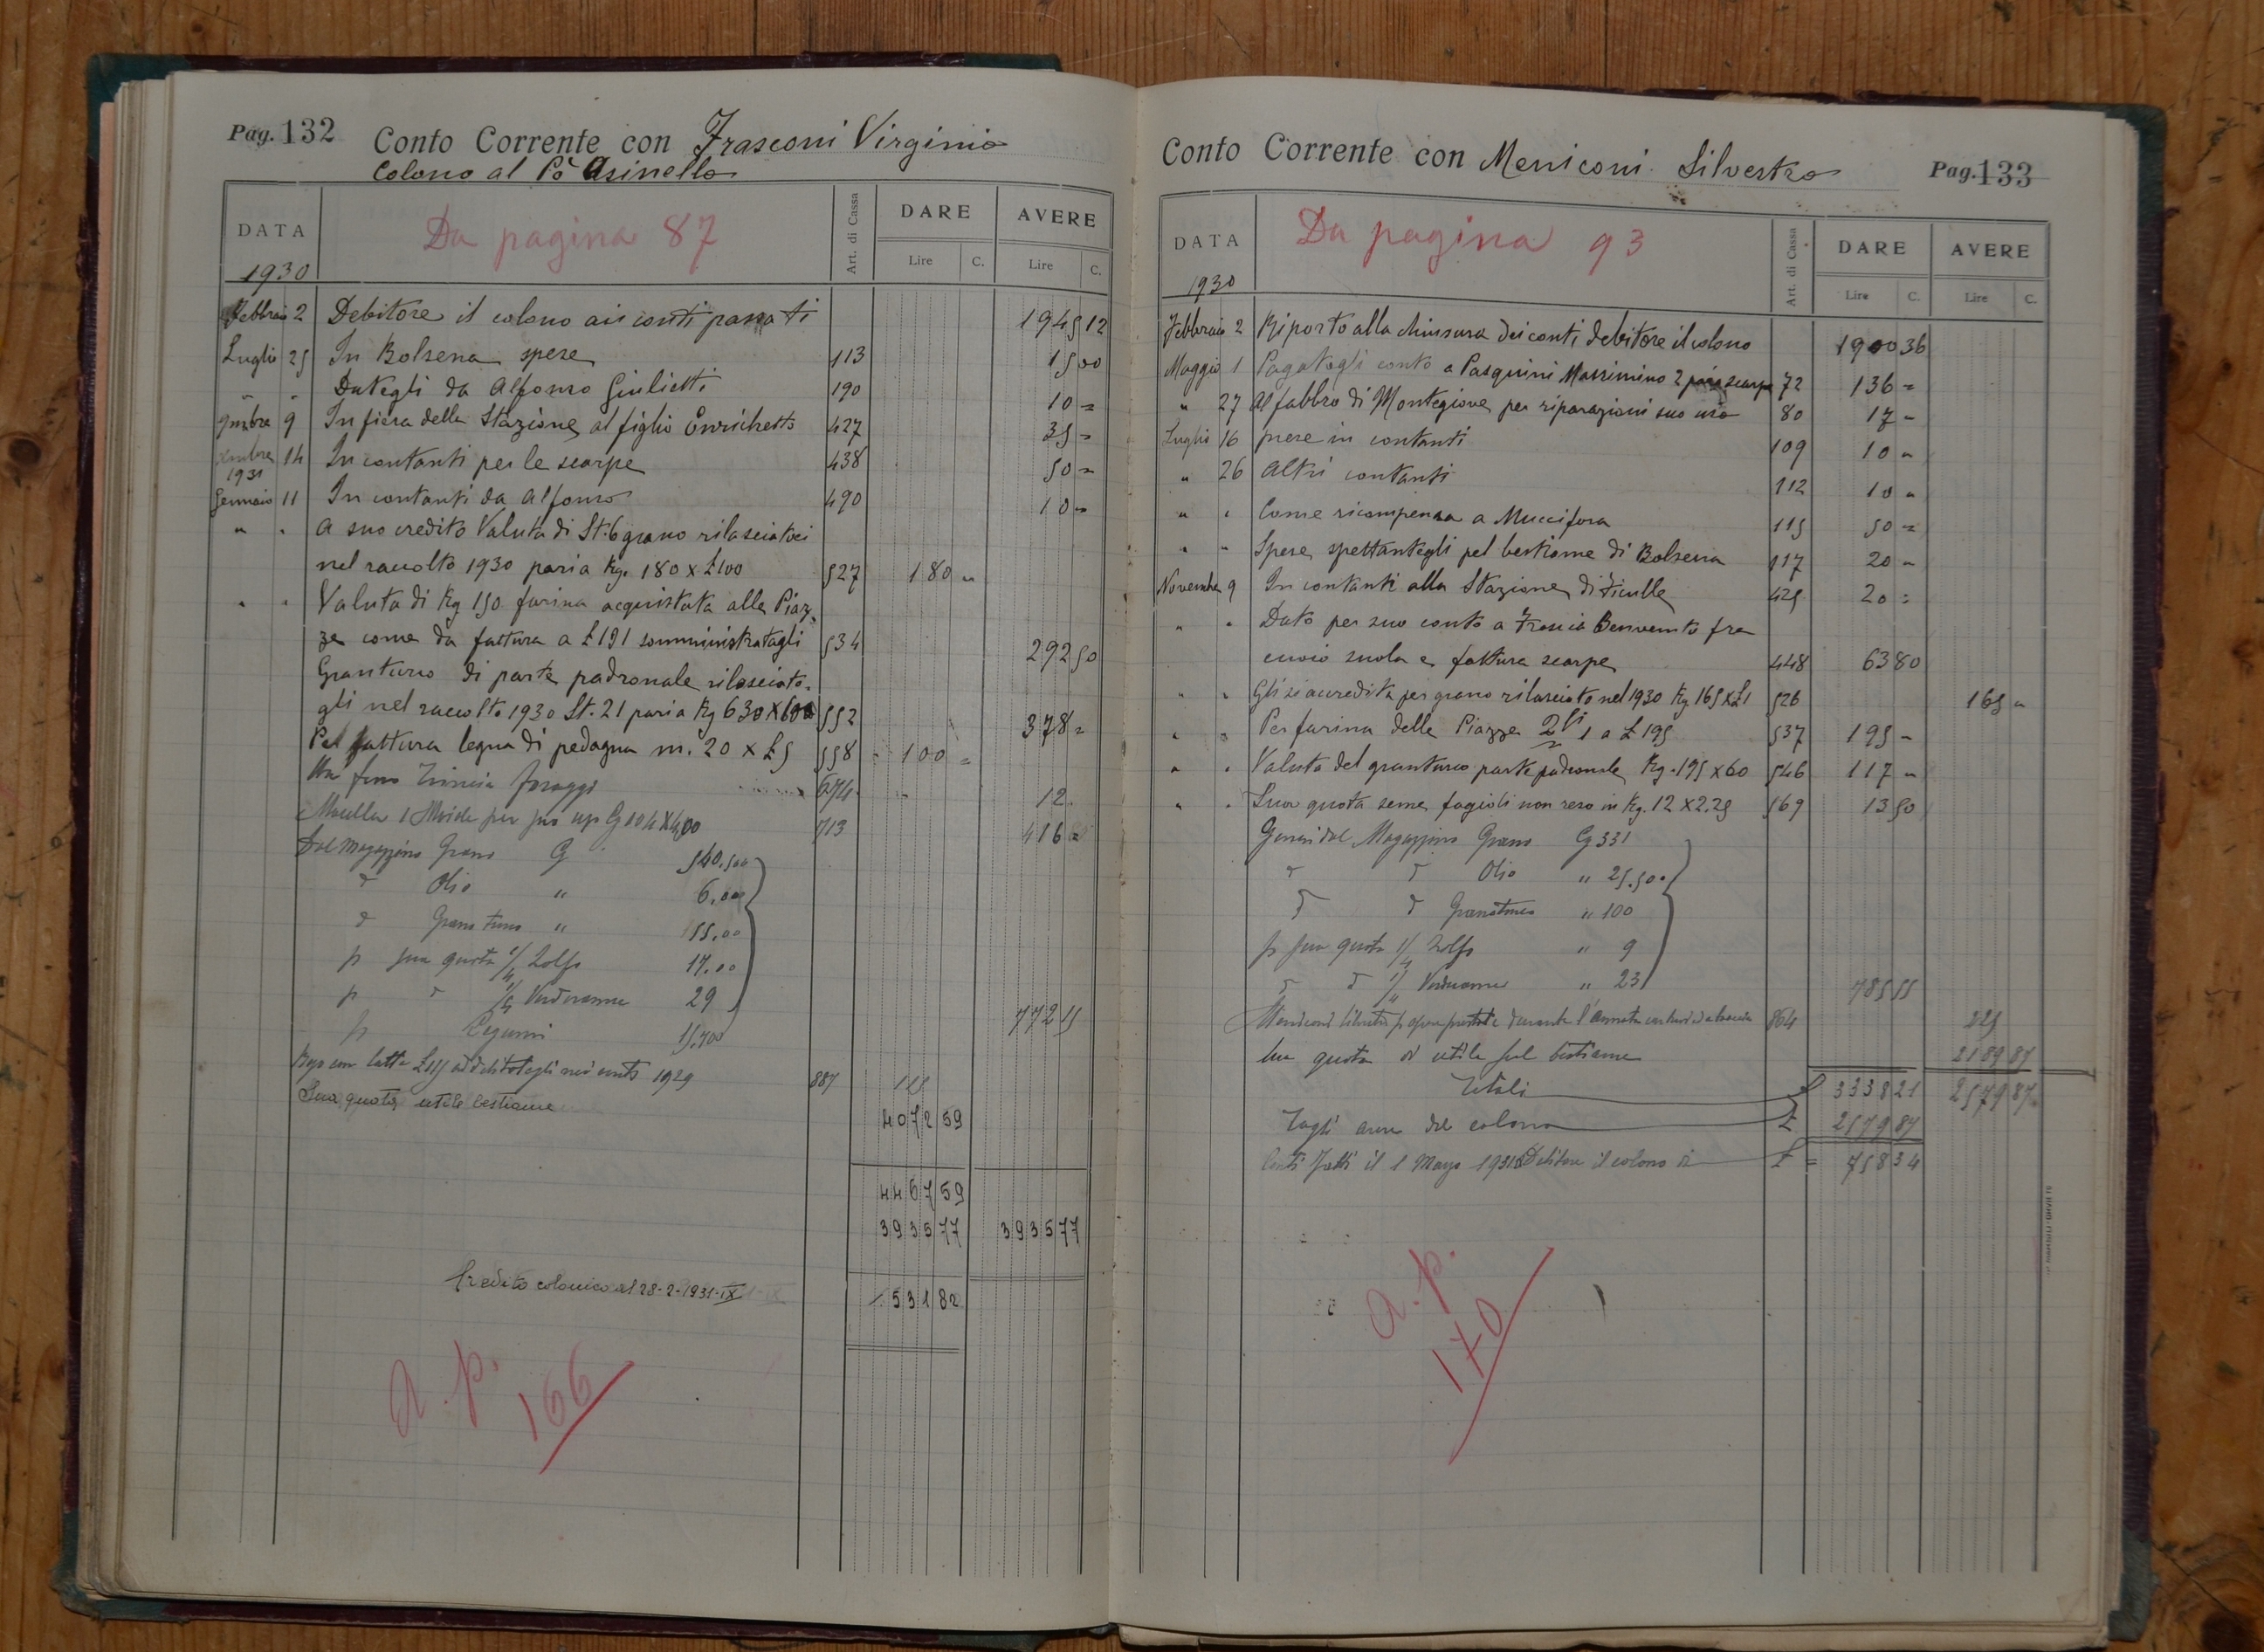 Pag. 132 Conto Corrente con Frasconi Virginio
Colono al Pò Asinello
DATA Da pagina 87 Art. di Cassa DARE AVERE
1930 Lire C. Lire C.
Febbraio 2 Debitore il colono ai conti passati 1945 12
Luglio 25 In Bolsena spese 113 15 00
" " Dategli da Alfonso Giulietti 190 10 =
9mbre 9 In fiera della Stazione al figlio Enrichetto 427 35 =
Xmbre 14 In contanti per le scarpe 438 50 =
1931
Gennaio 11 In contanti da Alfonso 490 10 =
" " A suo credito Valuta di St. 6 grano rilasciatoci
nel raccolto 1930 pari a Kg. 180 x £ 100 527 180 "
" " Valuta di Kg 150 farina acquistata alle Piaz-
ze come da fattura a £ 191 somministratagli 534 292 50
Granturco di parte padronale rilasciato-
gli nel raccolto 1930 St. 21 pari a Kg 630 x 60 552 378 =
Pel fattura legna di pedagna m. 20 x £ 5 558 100 =
Trincia foraggi 674 12
713 416 =
Dal Magazzino Grano 540.500
" Olio " 6,00
" Granturco " 55.00
p sua quota 1/4 Zolfo 17.00
p " Verderame 29
p Legumi 772 55
ai conti 1929 887 115
Sua quota utile bestiame 4072 59
4467 59
3935 77 3935 77
Credito colonico al 28-2-1931-IX 531 82
a. p. 166
Conto Corrente con Meniconi Silvestro Pag. 133
DATA Da pagina 93 Art. di Cassa DARE AVERE
1930 Lire C. Lire C.
Febbraio 2 Riporto alla chiusura dei conti debitore il colono 1900 36
Maggio 1 Pagatogli conto a Pasquini Massimino 2 paia scarpe 72 136 =
" 27 Al fabbro di Montegiove per riparazioni suo uso 80 17 -
Luglio 16 prese in contanti 109 10 "
" 26 Altri contanti 112 10 "
" " Come ricompensa a Muccifora 115 50 =
" " Spese spettantegli pel bestiame di Bolsena 117 20 -
Novembre 9 In contanti alla Stazione di Ficulle 425 20 =
" " Dato per suo conto a Frascia Benvenuto fra
cuoio suola e fattura scarpe 448 63 80
" " Gli si accredita per grano rilasciato nel 1930 Kg 165 x £ 1 526 165 "
" " Per farina delle Piazze 2li 1 a £ 195 537 195 -
" " Valuta del granturco parte padronale Kg. 195 x 60 546 117 "
" " Sua quota seme fagioli non reso in Kg. 12 x 2.25 569 13 50
Generi dal Magazzino Grano Cg 331
" " Olio " 25.50
" " Granturco " 100
p sua quota 1/4 Zolfo " 9
" " 1/4 Verderame " 23 785 55
durante l'annata 864 225
Sua quota di utile sul bestiame 2189 87
Totali £ 3338 21 2579 87
Togli avere del colono £ 2579 87
Conti fatti il 1 Marzo 1931 Debitore il colono di £ = 758 34
a. p. 170